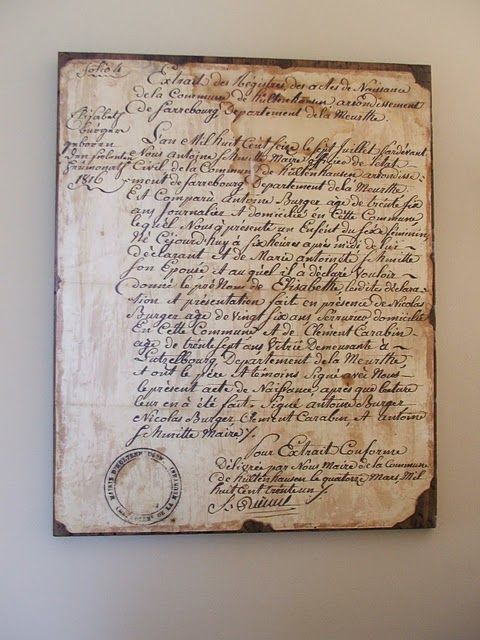 Folio 4
Extrait des Régistres, des actes de Naissance
de la Commune de Hültenhausen arrondissement
de Sarrebourg, Departement de la Meurthe.
Elisabeth
bürger
geboren
den siebenten
heumonath
1816
L'an Mil huit Cent seize le sept juillet pardevant
Nous Antoine s. Muitte Maire officier de l'etat
Civil de la Commune de Hültenhausen arrondisse-
ment de sarrebourg Departement de la Meurthe
Est Comparu antoine Burger age de trente six
ans journalier & domicilié en Cette Commune
lequel Nous a présenté un Enfant du sexe féminin
Né Céjourd'huy à six heures après midi de lui
déclarant & de Marie antoinette s. Muitte
son Epouse & auquel il à déclaré Vouloir
donné le prénoms de Elisabethe lesdites déclara-
tion & présentation fait en présence de Nicolas
Burger age de vingt six ans Serrurier domicilié
En Cette Commune & de Clément Carabin
age de trente sept ans Vitrié Demeurante a
Lutzelbourg Departement de la Meurthe
& ont le père & témoins Signé avec Nous
le présent acte de Naissance après que lecture
leur en à été fait. Signé antoine Burger
Nicolas Burger, Clement Carabin, & Antoine
s. Muitte Maire /.
Pour Extrait Conforme
Délivrée par Nous Maire de la Commune
de Hültenhausen le quatorze Mars Mil
huit Cent trente un /.
MAIRIE D'HULTENHAUSEN
DE LA MEURTHE